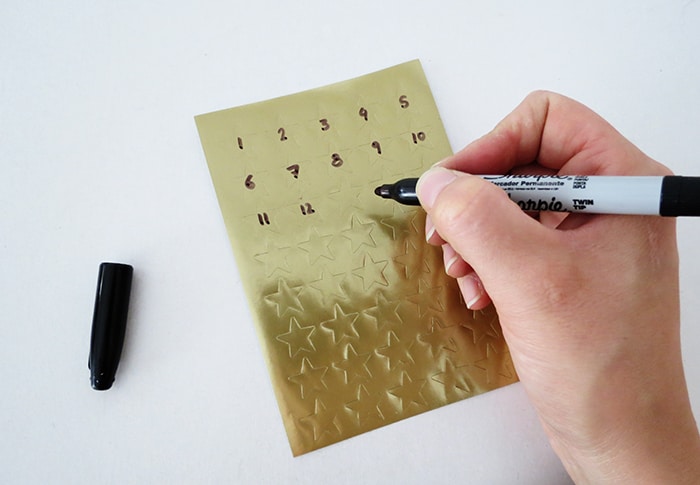 1 2 3 4 5
6 7 8 9 10
11 12
Sharpie
Marcador Permanente
Sharpie TWIN TIP